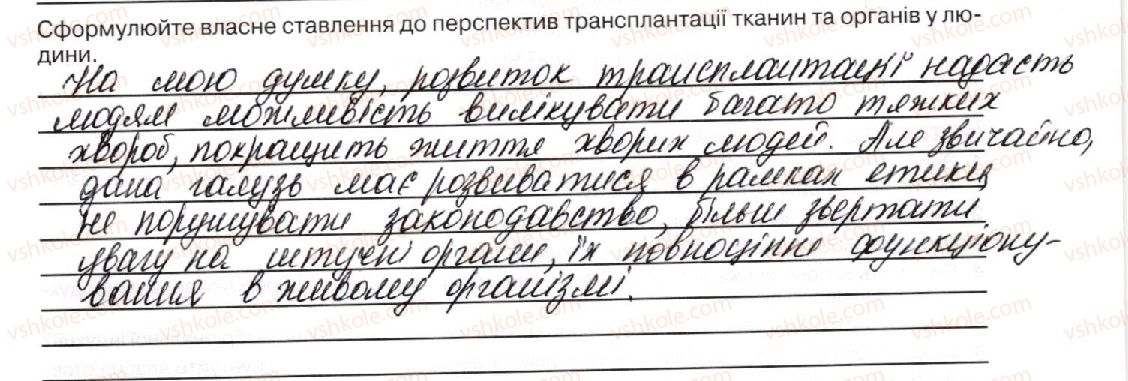 Сформулюйте власне ставлення до перспектив трансплантації тканин та органів у лю-
дини.
На мою думку, розвиток трансплантації надасть
людям можливість вилікувати багато тяжких
хвороб, покращить життя хворих людей. Але звичайно,
дана галузь має розвиватися в рамках етики
не порушувати законодавство, більш звертати
увагу на штучні органи, їх повноцінне функціону-
вання в живому організмі.